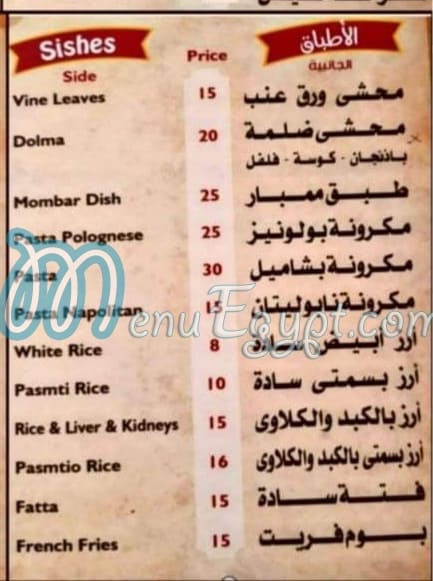 Sishes
Side
Price
الأطباق
الجانبية
Vine Leaves 15 محشى ورق عنب
Dolma 20 محشى ضلمة
باذنجان - كوسة - فلفل
Mombar Dish 25 طبق ممبار
Pasta Polognese 25 مكرونة بولونيز
Pasta 30 مكرونة بشاميل
Pasta Napolitan 15 مكرونة نابوليتان
MenuEgypt.com
White Rice 8 أرز أبيض سادة
Pasmti Rice 10 أرز بسمتى سادة
Rice & Liver & Kidneys 15 أرز بالكبد والكلاوى
Pasmtio Rice 16 أرز بسمتى بالكبد والكلاوى
Fatta 15 فتة سادة
French Fries 15 بوم فريت